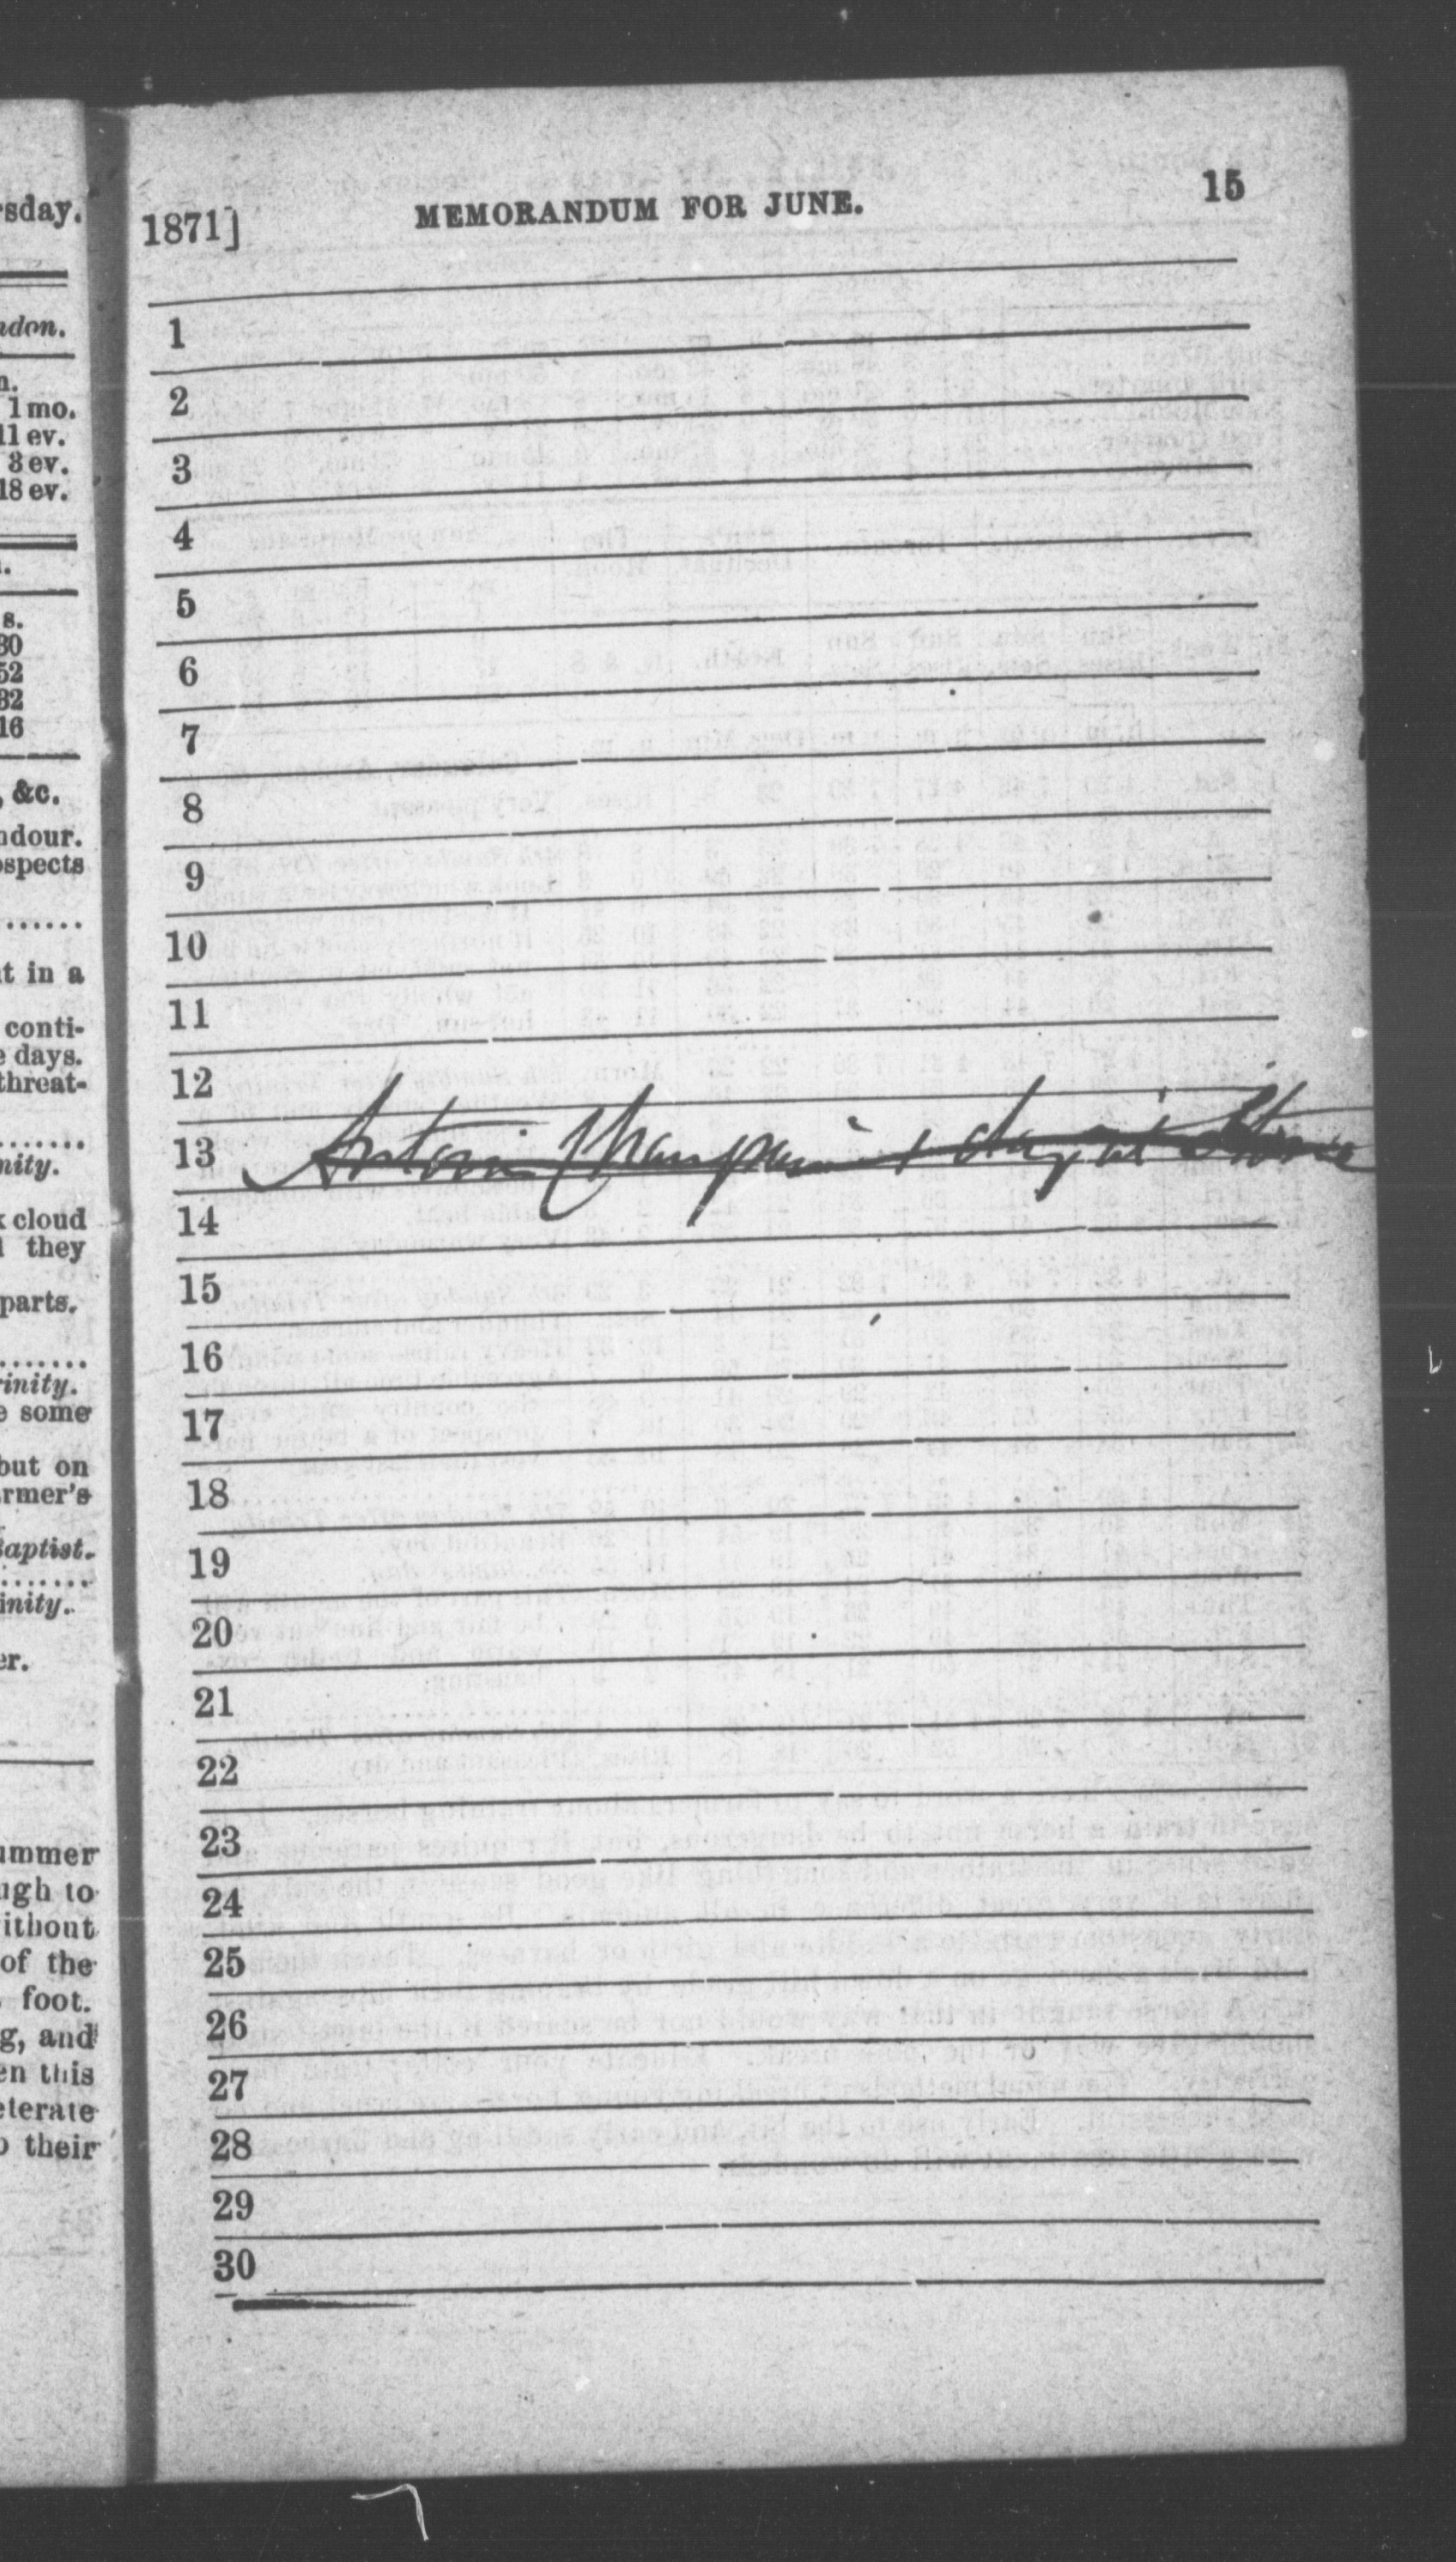 rsday.
ndon.
n.
1 mo.
11 ev.
3 ev.
18 ev.
s.
30
52
32
16
, &c.
ndour.
ospects
.......
t in a
conti-
e days.
threat-
.......
nity.
k cloud
l they
parts.
.......
rinity.
e some
but on
armer's
Baptist.
.......
inity.
er.
ummer
ugh to
vithout
of the
foot.
g, and
en this
eterate
o their
1871]
MEMORANDUM FOR JUNE.
15
1
2
3
4
5
6
7
8
9
10
11
12
13 Antoin Champain +
14
15
16
17
18
19
20
21
22
23
24
25
26
27
28
29
30